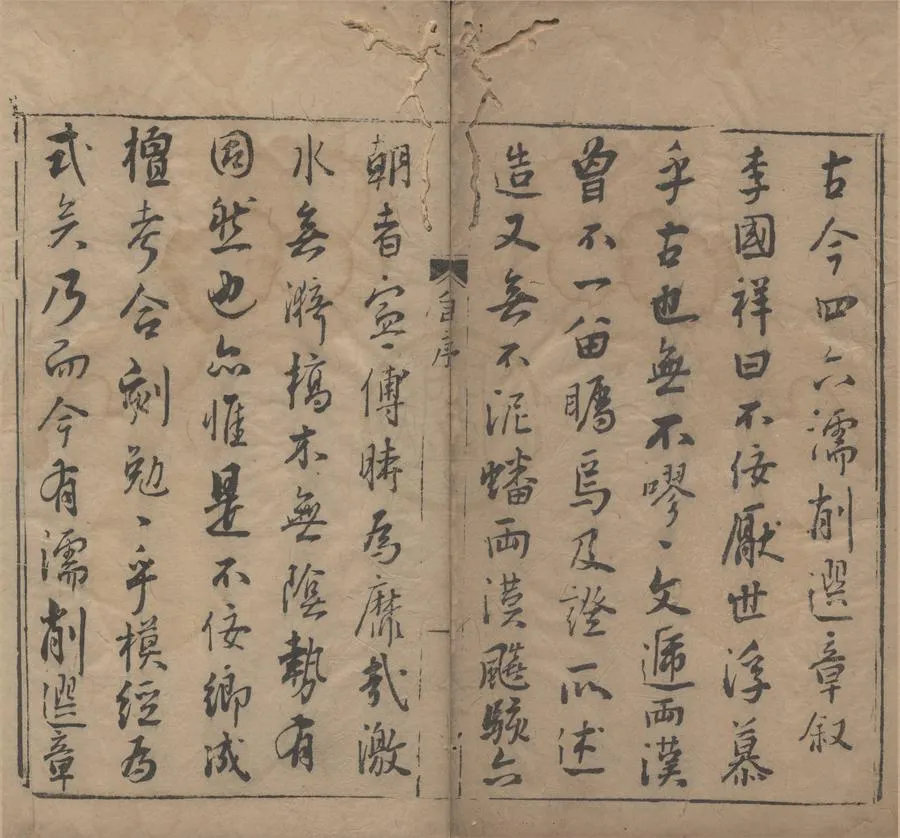 古今四六濡削選章叙
李國祥曰不佞厭世浮慕
乎古也無不嘐〻文遞兩漢
曾不一留矚焉及證所述
造又無不泥蟠兩漢颷駭六
自序
朝者寔傅時為靡哉激
水無漪槁木無陰勢有
固然也亦惟是不佞鄉成
檀考合刻勉〻乎模經為
式矣乃而今有濡削選章